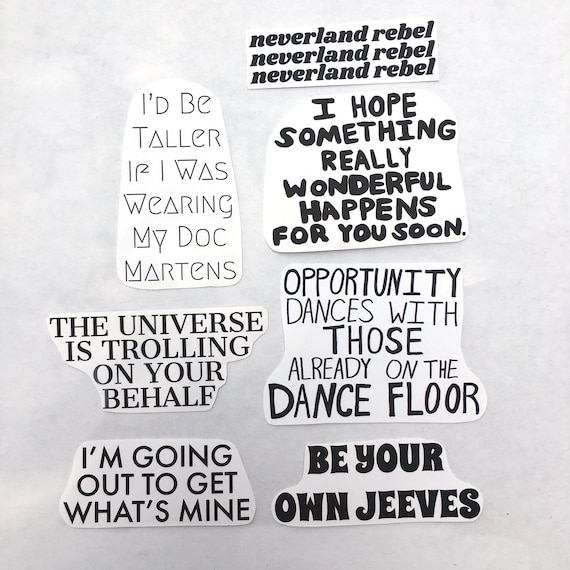 neverland rebel
neverland rebel
neverland rebel
I'D BE
TALLER
IF I WAS
WEARING
MY DOC
MARTENS
I HOPE
SOMETHING
REALLY
WONDERFUL
HAPPENS
FOR YOU SOON.
THE UNIVERSE
IS TROLLING
ON YOUR
BEHALF
OPPORTUNITY
DANCES WITH
THOSE
ALREADY ON THE
DANCE FLOOR
I'M GOING
OUT TO GET
WHAT'S MINE
BE YOUR
OWN JEEVES